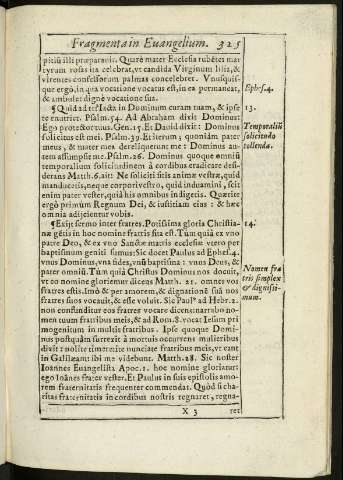 Fragmenta in Euangelium. 325
pitiũ illi præparauit. Quarè mater Ecclesia rubētes mar
tyrum rosas ita celebrat, vt candida Virginum lilia, &
virentes confessorum palmas concelebret. Vnusquis-
que ergò, in qua vocatione vocatus est, in ea permaneat,
& ambulet dignè vocatione sua.
Ephes. 4.
¶ Quid ad te? Iacta in Dominum curam tuam, & ipse
te enutriet. Psalm. 54. Ad Abraham dixit Dominus:
Ego protector tuus. Gen. 15. Et Dauid dixit: Dominus
solicitus est mei. Psalm. 39. Et iterum; quoniám pater
meus, & mater mea dereliquerunt me: Dominus au-
tem assumpsit me. Psalm. 26. Dominus quoque omniũ
temporalium solicitudinem à cordibus eradicare desi-
derans Matth. 6. ait: Ne soliciti sitis animæ vestræ, quid
manducetis, neque corpori vestro, quid induamini, scit
enim pater vester, quia his omnibus indigetis. Quærite
ergò primùm Regnum Dei, & iustitiam eius: & hæc
omnia adjicientur vobis.
13.
Temporaliũ
solicitudo
tollenda.
¶ Exijt sermo inter fratres. Potissima gloria Christia-
næ gētis in hoc nomine fratris sita est. Tùm quia ex vno
patre Deo, & ex vno Sanctæ matris ecclesiæ vtero per
baptismum geniti sumus: Sic docet Paulus ad Ephes. 4.
vnus Dominus, vna fides, vnũ baptisma: vnus Deus, &
pater omniũ. Tùm quia Christus Dominus nos docuit,
vt eo nomine gloriemur dicens Matth. 21. omnes vos
fratres estis. Imò & per amorem, & dignationē suã nos
fratres suos vocauit, & esse voluit. Sic Paulᵍ ad Hebr. 2.
non confunditur eos fratres vocare dicens: narrabo no-
men tuum fratribus meis, & ad Rom. 8. vocat Iesum pri
mogenitum in multis fratribus. Ipse quoque Domi-
nus postquàm surrexit à mortuis occurrens mulieribus
dixit: nolite timere: ite nunciate fratribus meis, vt eant
in Galilæam: ibi me videbunt. Matth. 28. Sic noster
Ioannes Euangelista Apoc. 1. hoc nomine gloriatur:
ego Ioānes frater vester. Et Paulus in suis epistolis amo
rem fraternitatis frequenter commendat. Quòd si cha-
ritas fraternitatis in cordibus nostris regnaret, regna-
14.
Nomen fra
tris simplex
& dignissi-
mum.
X 3 ret